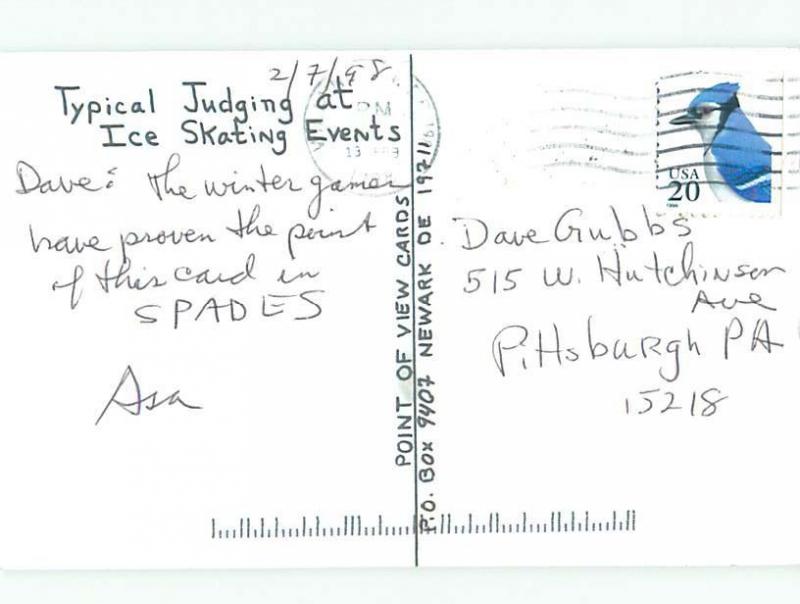 2/7/98
Typical Judging at
Ice Skating Events
Dave: The winter games
have proven the point
of this card in
SPADES
Asa
POINT OF VIEW CARDS
P.O. BOX 9407 NEWARK DE 19711
USA
20
PM
13
Dave Gubbs
515 W. Hutchinson
Ave
Pittsburgh PA
15218